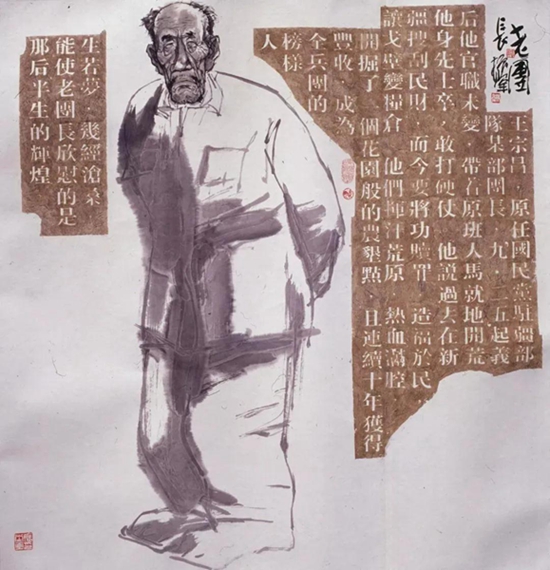 老團
長
王宗昌，原任國民黨駐疆部
隊某部團長，九·二五起義
后他官職未變，帶着原班人馬就地開荒
他身先士卒，敢打硬仗。他説過去在新
疆搜刮民財，而今要將功贖罪，造福於民，
讓戈壁變糧倉。他們揮汗荒原，熱血滿腔
開掘了一個花園般的農墾點，且連續十年獲得
豐收，成為
全兵團的
榜樣
人
生若夢，幾經滄桑
能使老團長欣慰的是
那后半生的輝煌